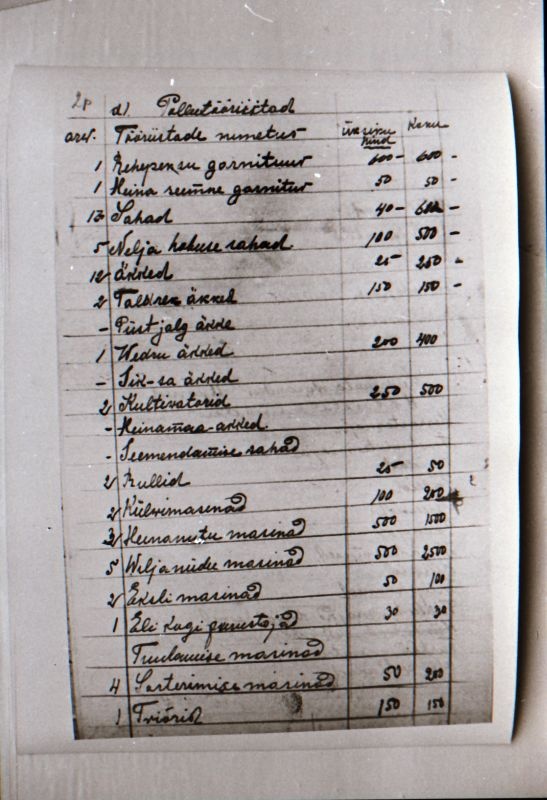 2p d) Põllutööriistad
arv. Tööriistade nimetus üksiku hind Kokku
1 Rehepeksu garnituur 600 – 600 –
1 Heina seemne garnitur 50 50 –
13 Sahad 40 –
5 Nelja hobuse sahad 100 500 –
äkked 25 250 –
2 Taldrek äkked 150 150 –
– Püstjalg äkke
1 Wedru äkked 200 400
– Sik-sa äkked
2 Kultivatorid 250 500
– Heinamaa-äkked
– Seemendamise sahad
2 Rullid 25 50
2 Külvimasinad 100 200
3 Heinaniitu masinad 500 1500
5 Weljaniidu masinad 500 2500
2 Eksli masinad 50 100
1 Eli kogi purustojad 30 30
Tuulamise masinad
4 Sorterimise masinad 50 200
1 Triörid 150 150